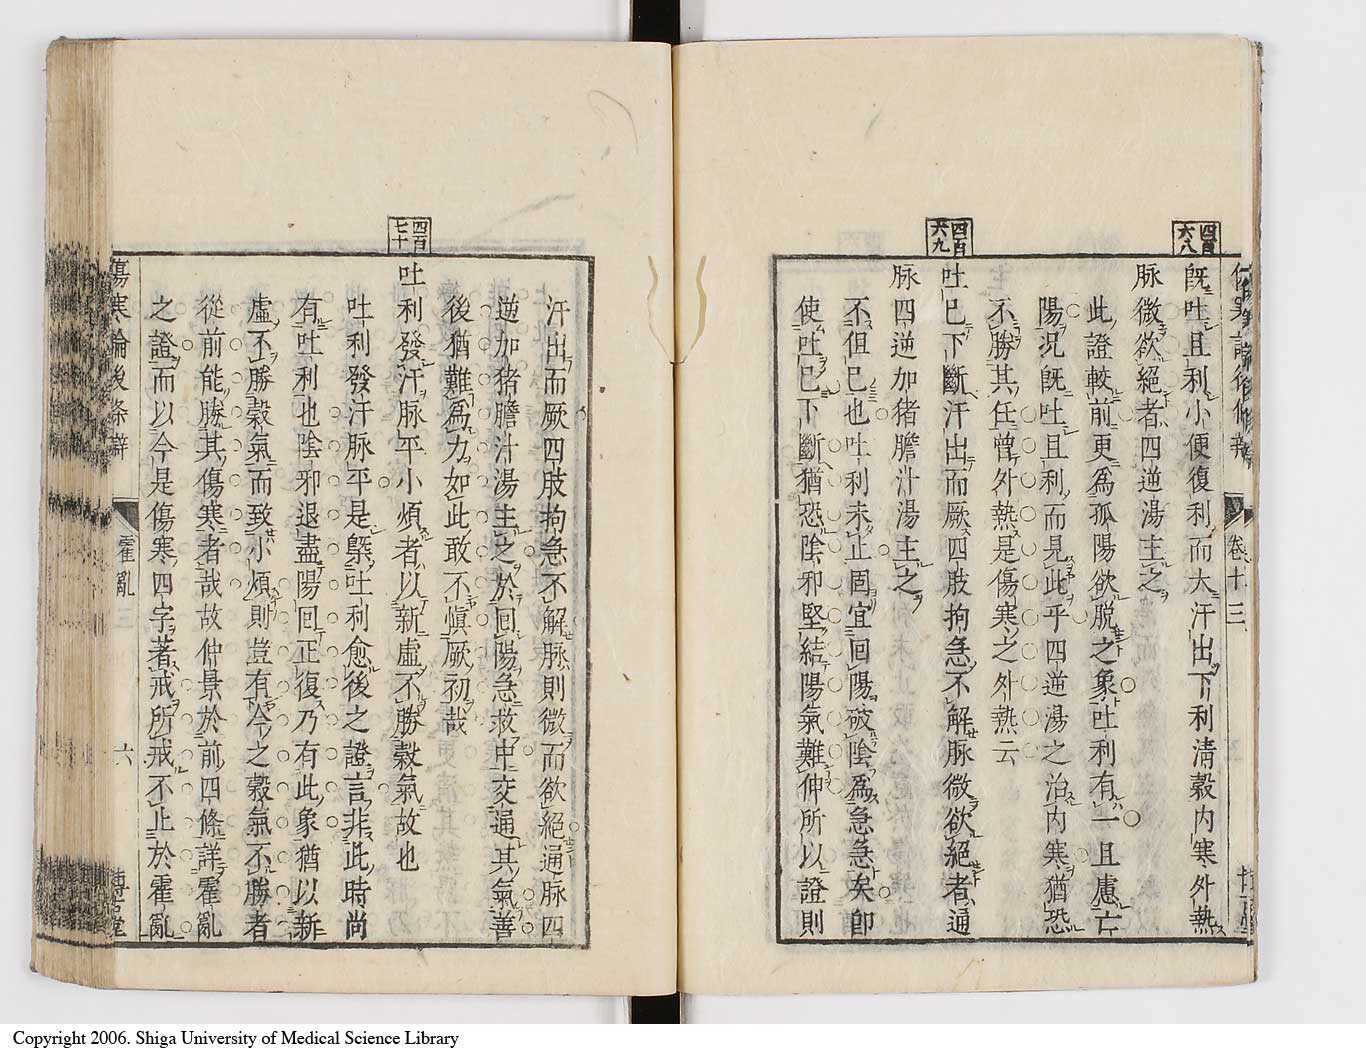 四百六八
既吐且利小便復利而大汗出下利清穀內寒外熱
脉微欲絕者四逆湯主之
此證較前更爲孤陽欲脫之象吐利有一且慮亡
陽況旣吐且利而見此乎四逆湯之治內寒猶恐
不勝其任曾外熱是傷寒之外熱云
四百六九
吐已下斷汗出而厥四肢拘急不解脉微欲絕者通
脉四逆加猪膽汁湯主之
不但已也吐利未止固宜回陽破陰爲急急矣卽
使吐已下斷猶恐陰邪堅結陽氣難伸所以證則
卷十三
汗出而厥四肢拘急不解脉則微而欲絕通脉四
逆加猪膽汁湯主之於回陽急救中交通其氣善
後猶難爲力如此敢不愼厥初哉
四百七十
吐利發汗脉平小煩者以新虛不勝穀氣故也
吐利發汗脉平是槩吐利愈後之證言非此時尚
有吐利也陰邪退盡陽回正復乃有此象猶以新
虛不勝穀氣而致小煩則豈有今之穀氣不勝者
從前能勝其傷寒者哉故仲景於前四條詳霍亂
之證而以今是傷寒四字著戒所戒不止於霍亂
傷寒論後條辨
霍亂
六
Copyright 2006. Shiga University of Medical Science Library